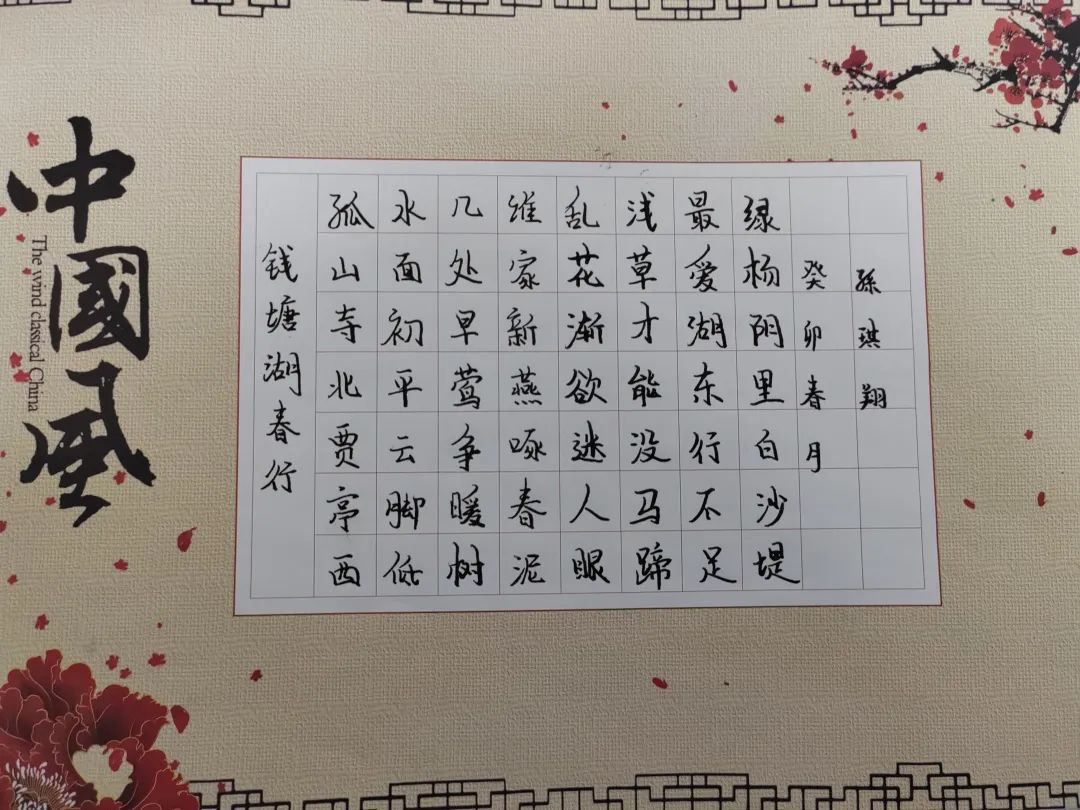 中國風
The wind classical China
钱塘湖春行
孤山寺北贾亭西
水面初平云脚低
几处早莺争暖树
维家新燕啄春泥
乱花渐欲迷人眼
浅草才能没马蹄
最爱湖东行不足
绿杨阴里白沙堤
癸卯春月
孫琪翔